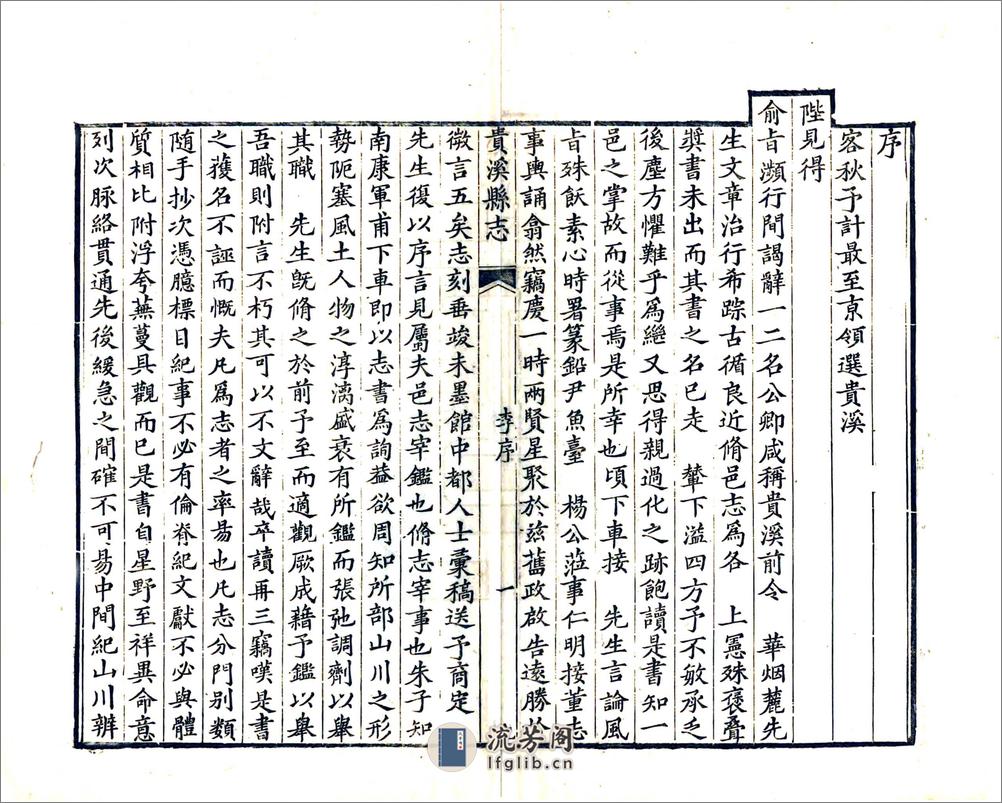 序
客秋予計最至京領選貴溪
陛見得
俞旨瀕行間謁辭一二名公卿咸稱貴溪前令　華烟麓先
生文章治行希踪古循良近脩邑志為各　上憲殊褒疊
奬書未出而其書之名已走　輦下溢四方予不敏承乏
後塵方懼難乎為繼又思得親過化之跡飽讀是書知一
邑之掌故而從事焉是所幸也頃下車接　先生言論風
旨殊飫素心時署篆鉛尹魚臺　楊公涖事仁明接董志
事輿誦翕然竊慶一時兩賢星聚於茲舊政啟告遠勝於
貴溪縣志　李序　一
微言五矣志刻垂竣未墨館中都人士彙稿送予商定
先生復以序言見屬夫邑志宰鑑也脩志宰事也朱子知
南康軍甫下車即以志書為詢葢欲周知所部山川之形
勢阨塞風土人物之淳漓盛衰有所鑑而張弛調劑以舉
其職　先生旣脩之於前予至而適觀厥成藉予鑑以舉
吾職則附言不朽其可以不文辭哉卒讀再三竊嘆是書
之獲名不誣而慨夫凡為志者之率易也凡志分門別類
隨手抄次憑臆標目紀事不必有倫脊紀文獻不必與體
質相比附浮夸蕪蔓具觀而已是書自星野至祥異命意
列次脉絡貫通先後緩急之間確不可易中間紀山川辨
流芳阁
lfglib.cn